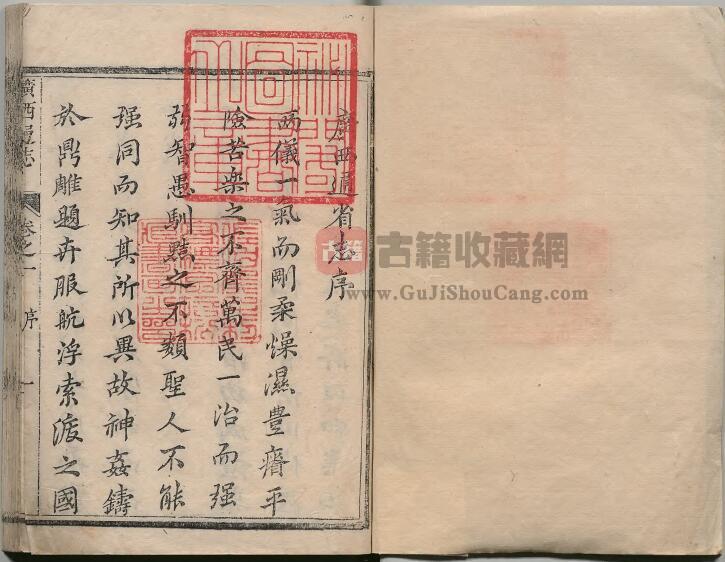 廣西通省志序
兩儀一氣而剛柔燥濕豊瘠平
險苦樂之不齊萬民一治而强
弱智愚馴黠之不類聖人不能
强同而知其所以異故神姦鑄
於鼎雕題卉服航浮索渡之國
廣西通志
卷之一
序
一
古籍
古籍收藏網
www.GuJiShouCang.com